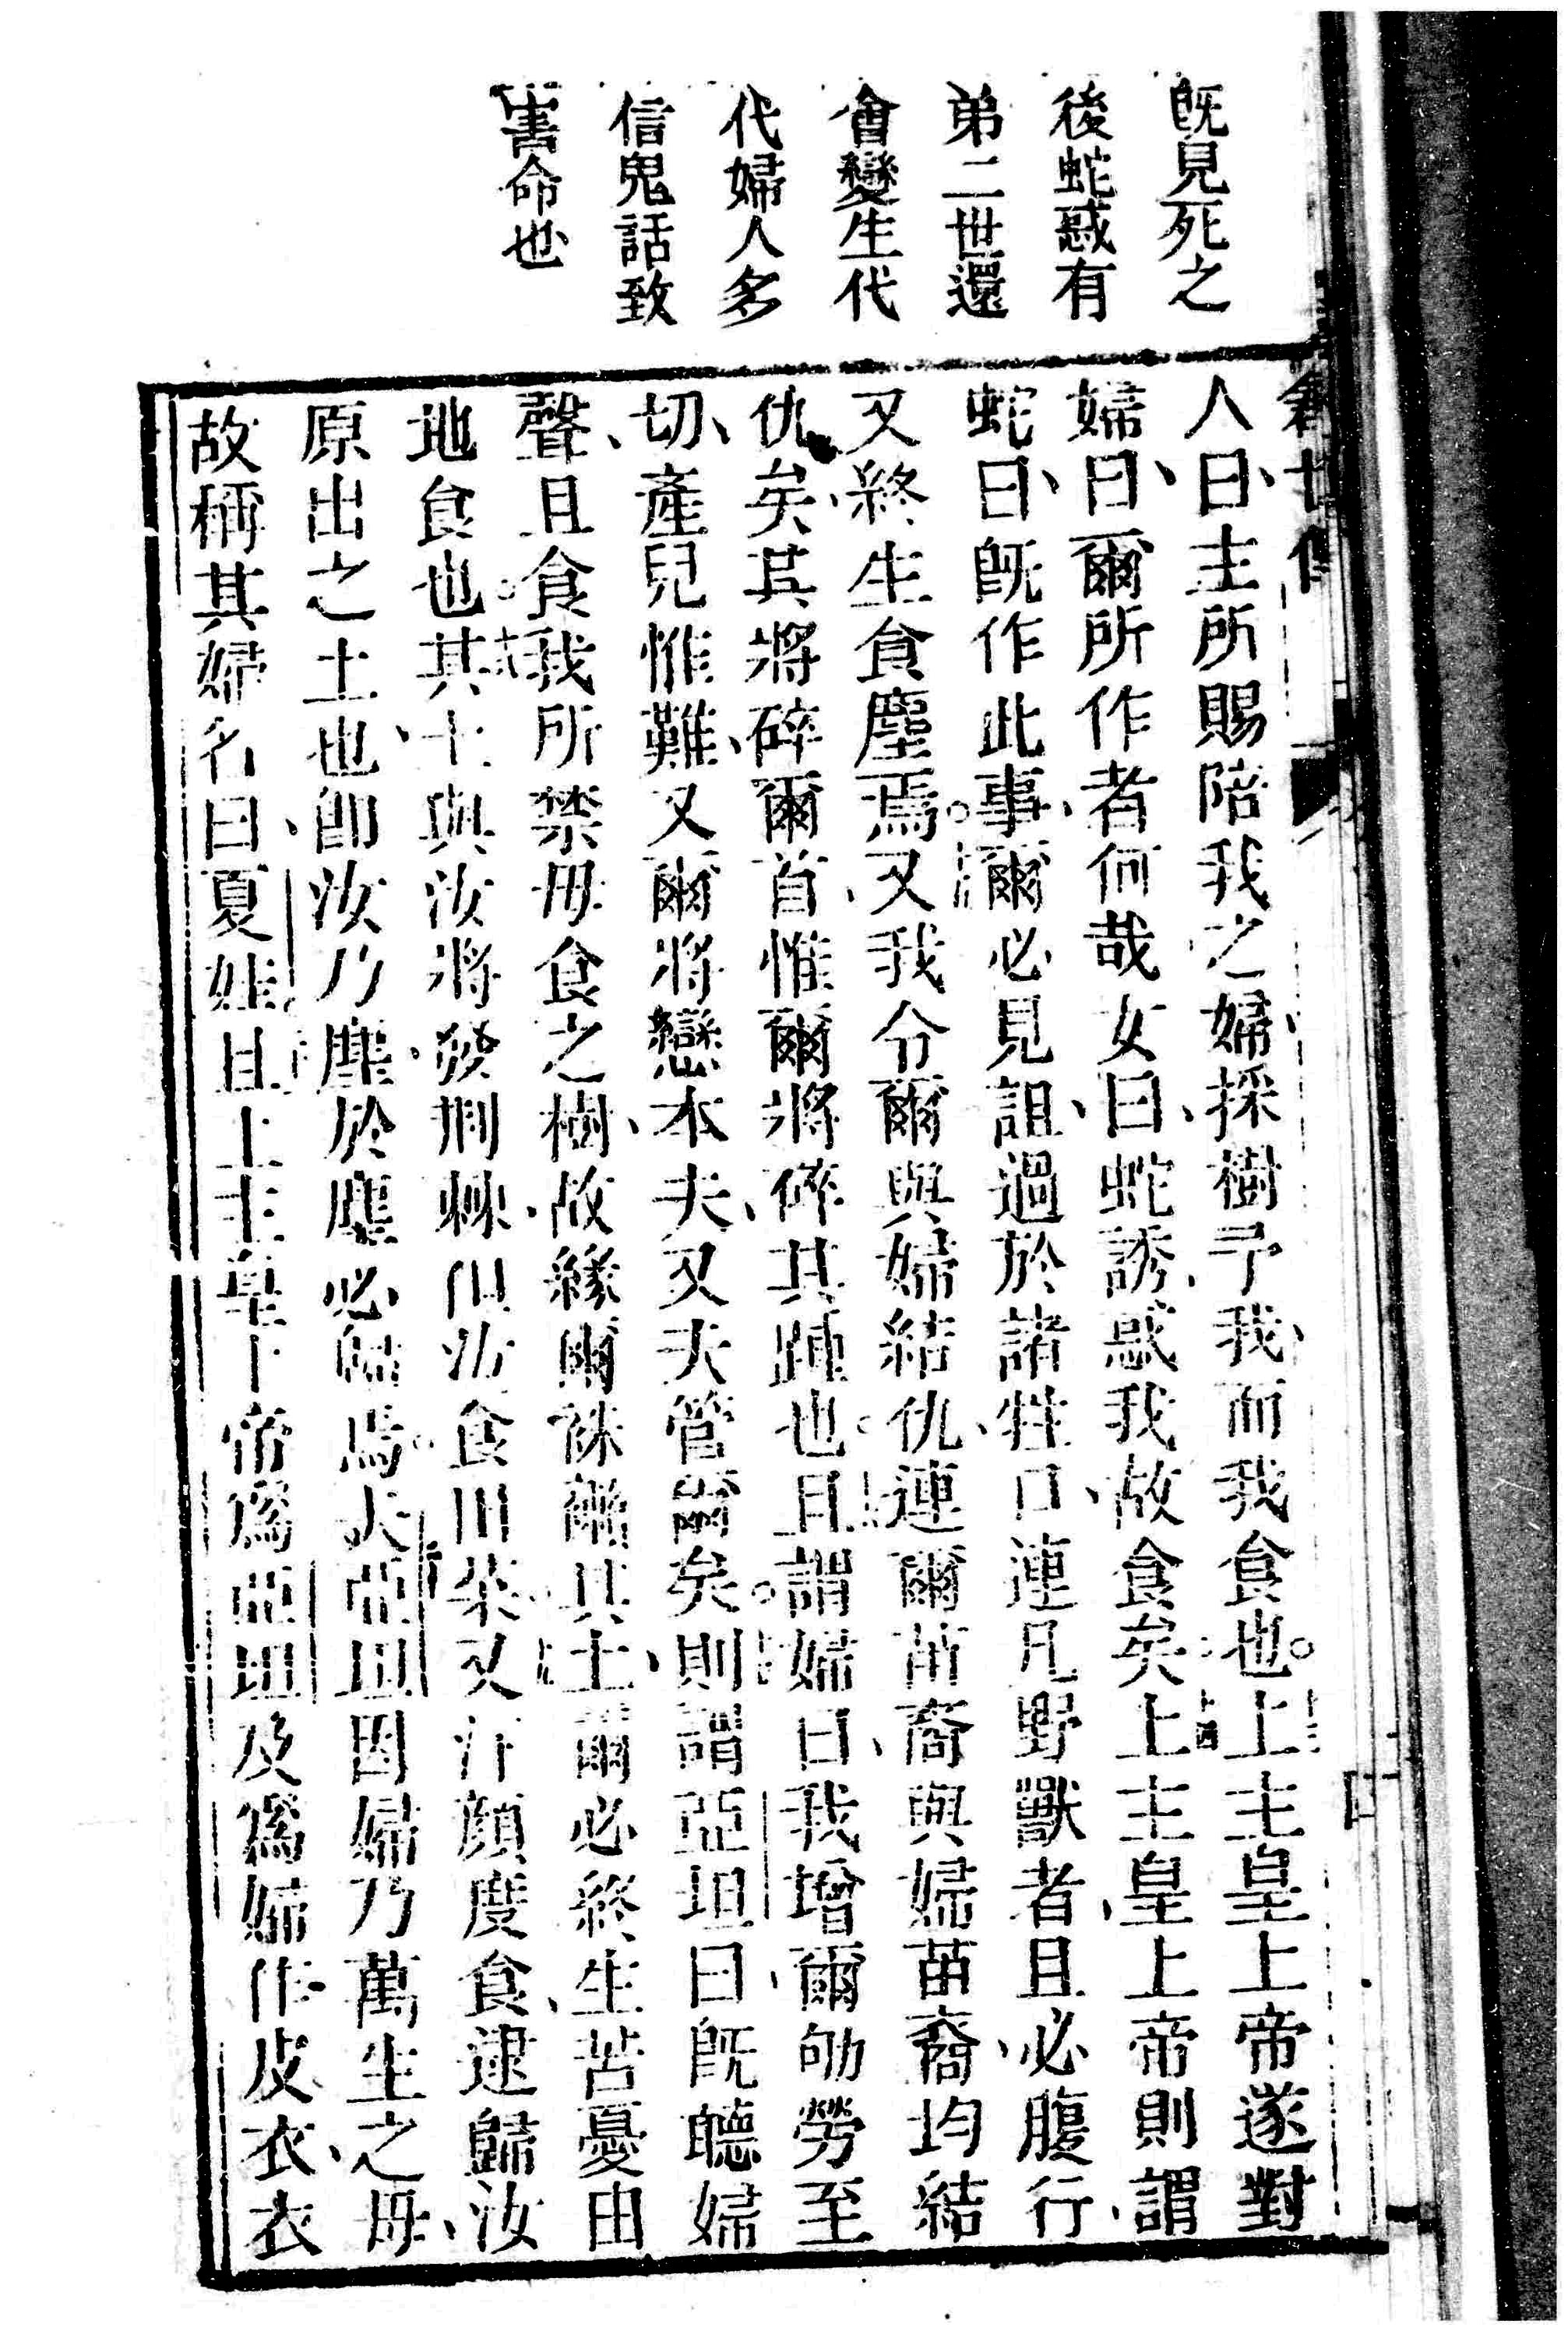 既見死之
後蛇惑有
弟二世還
會變生代
代婦人多
信鬼話致
害命也
人曰、主所賜陪我之婦、採樹予我、而我食也。上主皇上帝遂對
婦曰、爾所作者何哉女曰、蛇誘惑我故食矣上主皇上帝則謂
蛇曰、既作此事、爾必見詛、過於諸牲口、連凡野獸者、且必腹行、
又終生食塵焉。又我令爾與婦結仇、連爾苗裔與婦苗裔、均結
仇矣、其將碎爾首惟爾將碎其踵也。且謂婦曰、我增爾劬勞至
切、產兒惟難、又爾將戀本夫、又夫管爾矣。則謂亞坦曰、既聽婦
聲、且食我所禁毋食之樹、故緣爾
地食也。其土與汝將發荊棘、
食、逮歸汝
原出之土也、即汝乃塵、於塵必歸焉。夫亞坦因婦乃萬生之母、
故稱其婦名曰、夏娃、且上主皇上帝為亞坦及為婦作皮衣、衣